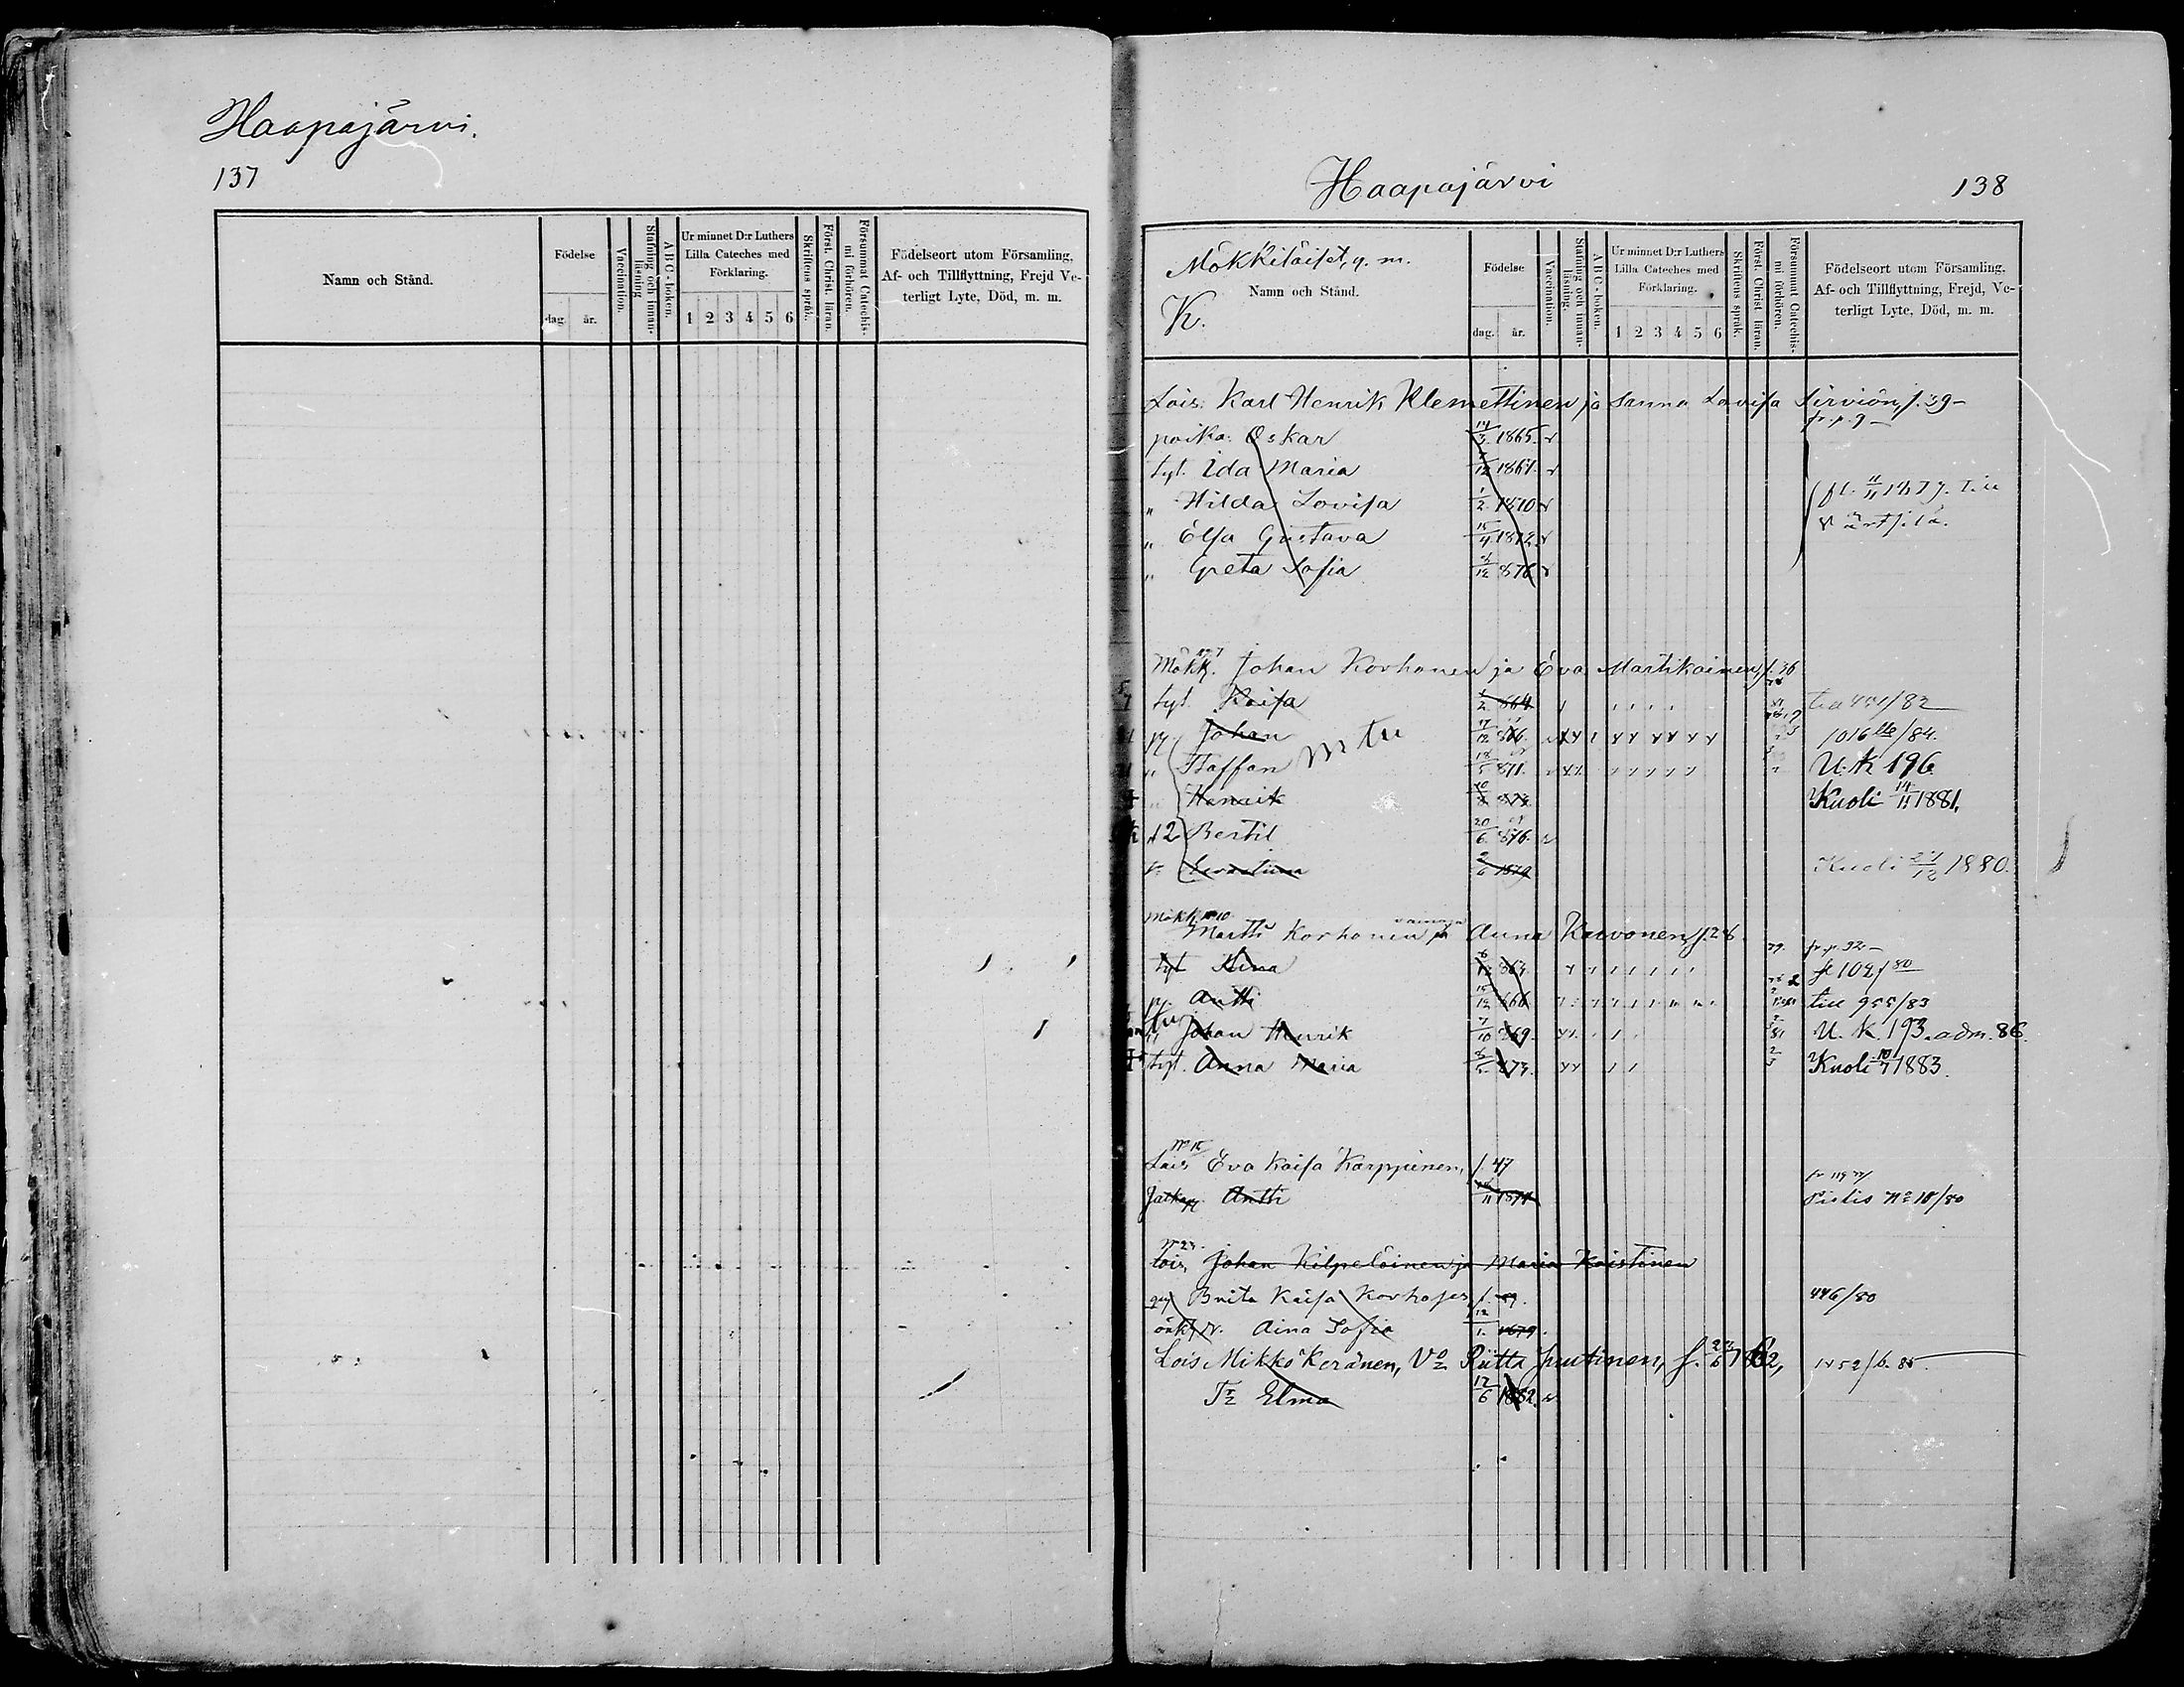 Haapajärvi.
137
Namn och Stånd.
Födelse
dag. år.
Vaccination.
Stafning och innan-läsning
A B C-boken.
Ur minnet D:r Luthers Lilla Cateches med Förklaring.
1 2 3 4 5 6
Skriftens språk.
Först. Christ. läran.
Försummat Catechis-mi förhören.
Födelseort utom Församling, Af- och Tillflyttning, Frejd Ve-terligt Lyte, Död, m. m.
Haapajärvi
138
Mökkiläiset, y. m.
Namn och Stånd.
K.
Födelse
dag. år.
Vaccination.
Stafning och innan-läsning.
A B C-boken.
Ur minnet D:r Luthers Lilla Cateches med Förklaring.
1 2 3 4 5 6
Skriftens språk.
Först. Christ läran.
Försummat Catechis-mi förhören.
Födelseort utom Församling, Af- och Tillflyttning, Frejd, Ve-terligt Lyte, Död, m. m.
Lois: Karl Henrik Klemettinen ja Sanna Lovisa Sirviön, f. 39
poika: Oskar 14/3 1865.
tyt. Ida Maria 1867.
" Hilda Lovisa 1/2 1870
" Elsa Gustava 15/4 1872
" Greta Sofia 876
fl. 11/11 1877. till Värtsilä.
Mökk. Johan Korhonen ja Eva Martikainen, f. 36
tyt. Kaisa 864 till 451/82
p. Johan 17/12 866. 1016 /84.
" Staffan 18/5 871. U. K 196
" Henrik Kuoli 14/11 1881,
Bertil 20/6 876.
6 1879 Kuoli 27/12 1880.
Mökk No 10
Martti Korhonen ja Anna Karvonen, f. 26
fr. p. 92-
tyt Stina 863 fl 102/80
p. Antti 15/12 866 till 955/83
" Johan Henrik 7/10 869. U. K. 193. adm. 86.
tyt. Anna Maria 873. Kuoli 10/7 1883.
No 15
Lois Eva Kaisa Karppinen, f. 47
Antti 11 1874 No 10/80
No 23.
Lois, Johan Kilpeläinen ja Maria Koistinen
Brita Kaisa Korhoses, f. 446/80
Aina Sofia 12/1. 1879.
Lois Mikko Keränen, Vo Riitta Juutinen, f. 1862, 1252/b. 85.
Tr Elma 12/6 1882.